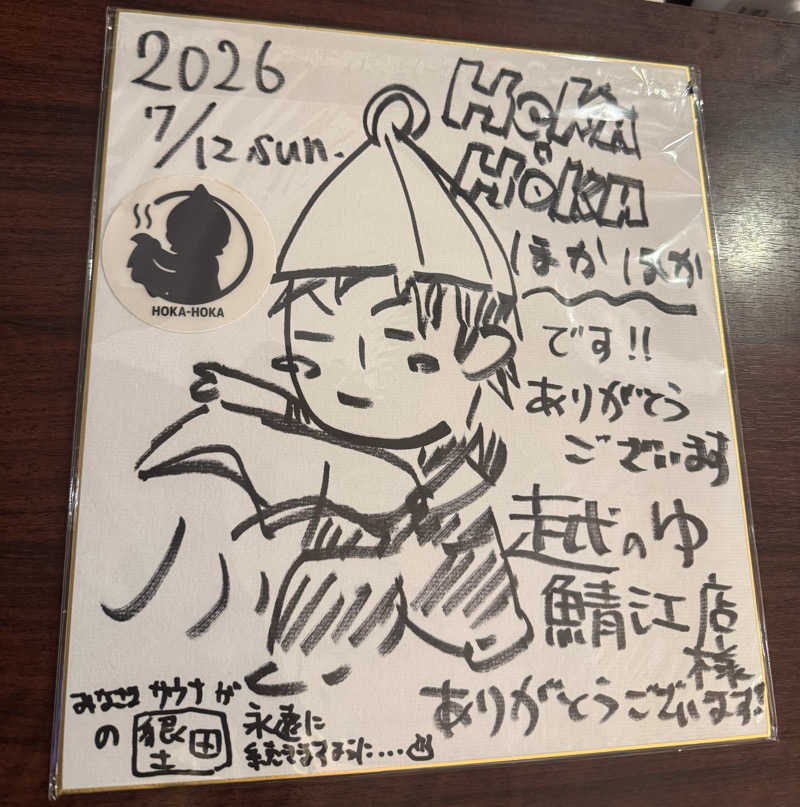 2026
7/12 sun.
HOKA
HOKA
HOKA-HOKA
ほかほか
です!!
ありがとう
ございます
越のゆ
鯖江店
様
ありがとうございます!
みなさま サウナが
の
永遠に